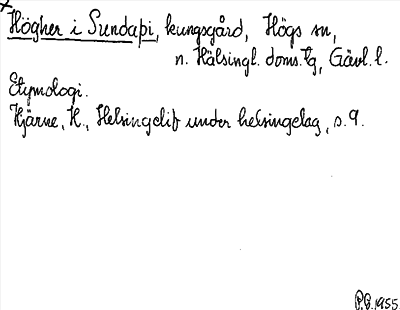 Högher i Sundapi, kungsgård, Högs sn,
n. Hälsingl. doms.tg, Gävl. l.
Etymologi.
Hjärne, H., Helsingelif under helsingelag, s. 9.
P.G. 1955